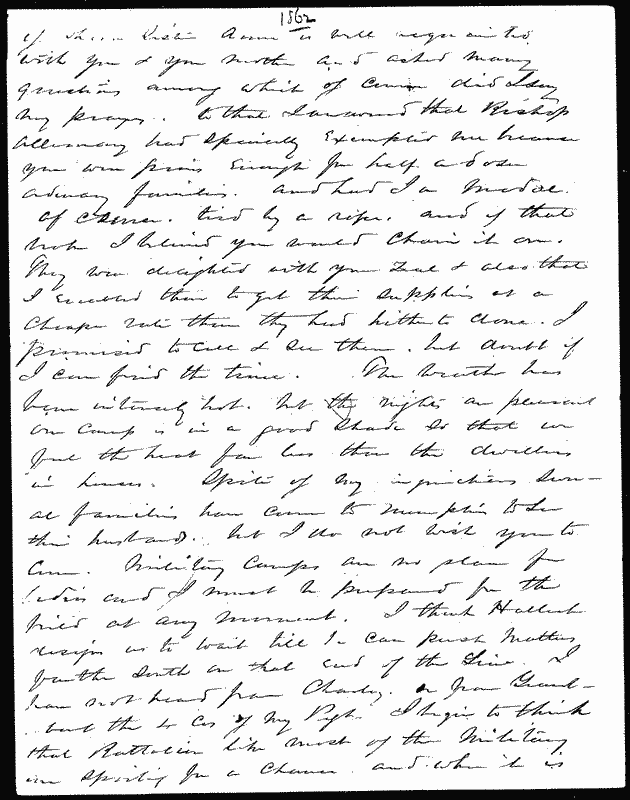 1862
Sister Anna is well acquainted
with you & your mother and asked many
questions among which of course did I say
my prayers. to that I answered that Bishop
Allemany had specially Exempted me because
you were pious Enough for half a dozen
ordinary families. and had I a
of tied by a and if that
I believed you would on.
They were delighted with your Zeal & also that
I Enabled them to get their supplies at a
Cheaper rate than they had hitherto done. I
promised to call & See them. but doubt if
I can find the time. The Weather has
been intensely hot. but the nights are pleasant
our camp is in a good shade so that we
feel the heat far less than the dwellers
in houses. Spite of my injunctions Sever-
al families have come to Memphis to See
their husbands. but I do not wish you to
Come. Military Camps are no place for
ladies and I must be prepared for the
field at any moment. I think Halleck
designs us to wait till he can push Matters
farther South on that End of the Line. I
have not heard from Charley. or from
the Cos of my I begin to think
that Battalion like most of the Military
are spoiling for a Chance. and when it is